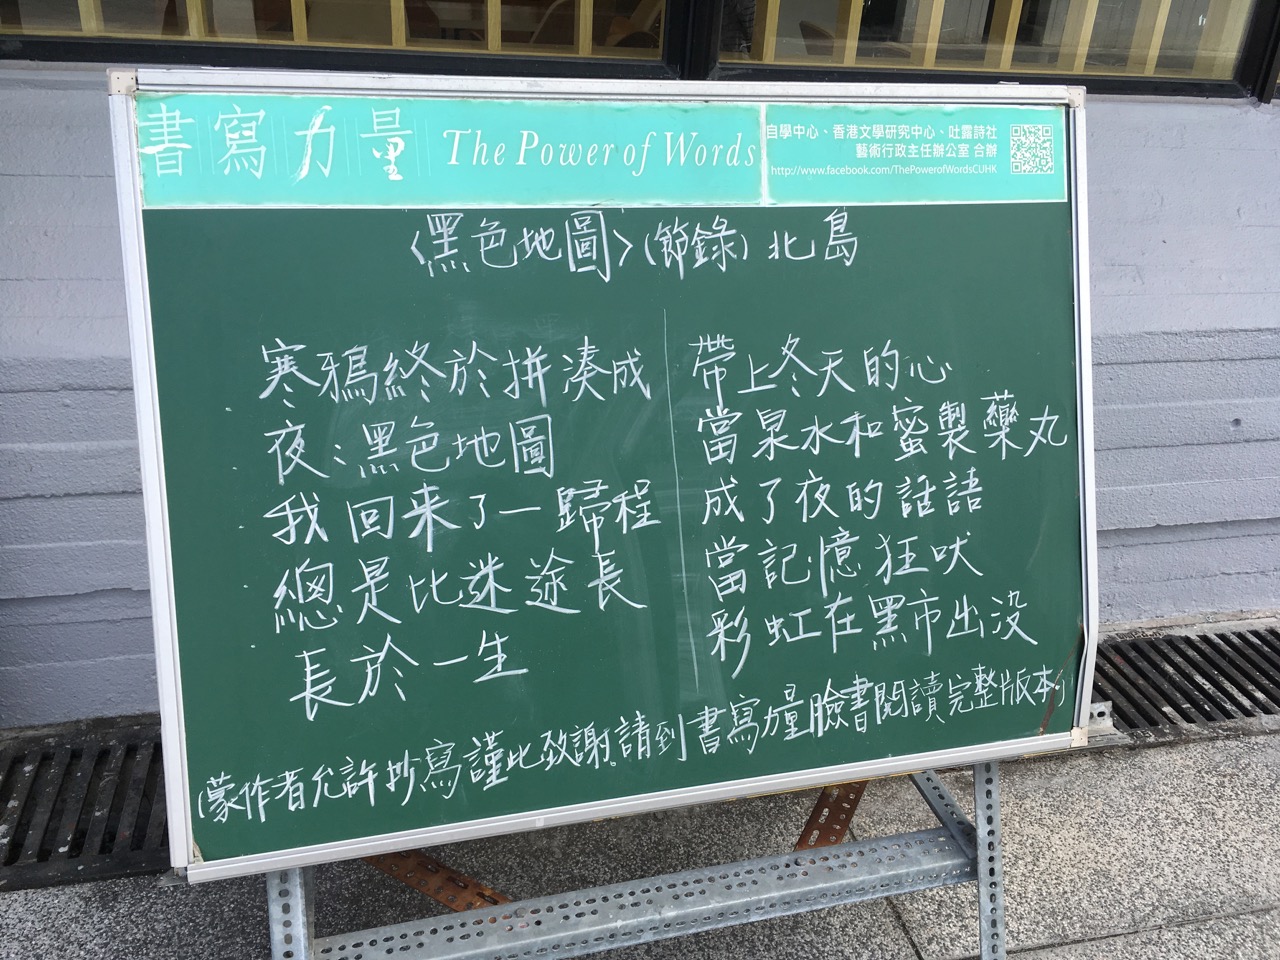 書寫力量 The Power of Words
自學中心、香港文學研究中心、吐露詩社
藝術行政主任辦公室 合辦
http://www.facebook.com/ThePowerofWordsCUHK
〈黑色地圖〉(節錄) 北島
寒鴉終於拼湊成
夜:黑色地圖
我回来了一歸程
總是比迷途長
長於一生
帶上冬天的心
當泉水和蜜製藥丸
成了夜的話語
當記憶狂吠
彩虹在黑市出没
(蒙作者允許抄寫謹此致謝。請到書寫力量臉書閱讀完整版本)